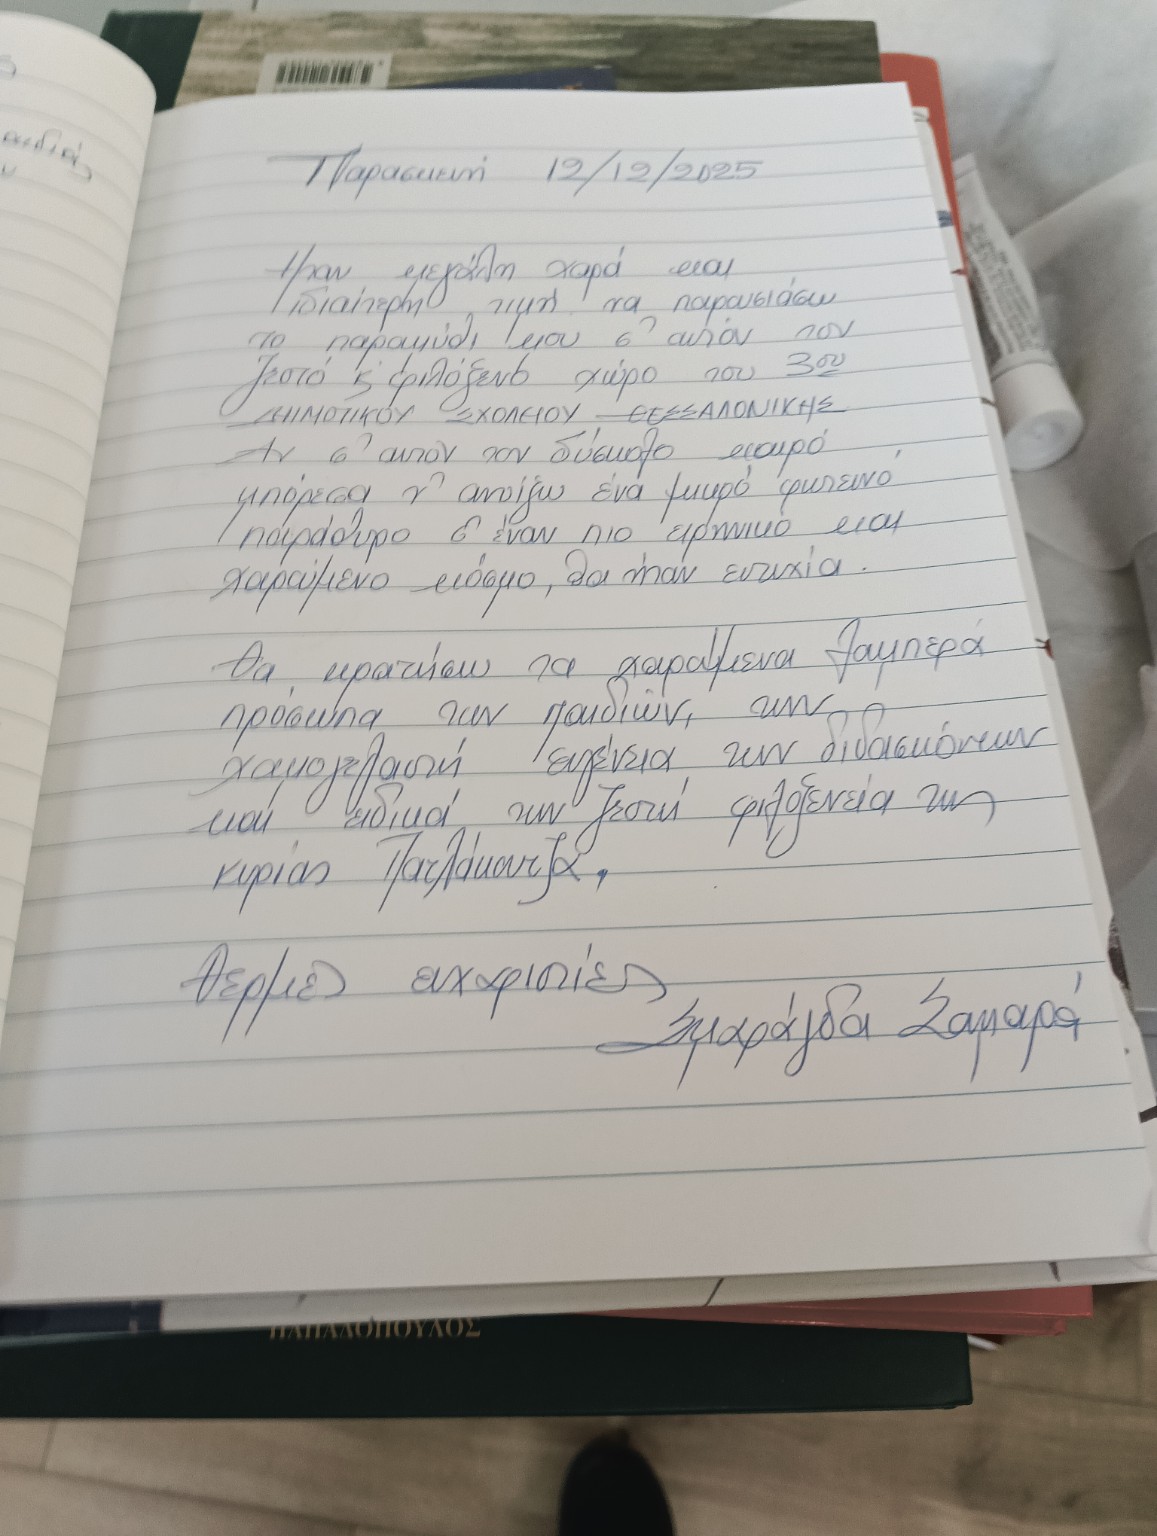 Παρασκευή 12/12/2025
Ήταν μεγάλη χαρά και
ιδιαίτερη τιμή να παρουσιάσω
το παραμύθι μου σ' αυτόν τον
ζεστό & φιλόξενο χώρο του 3ου
ΔΗΜΟΤΙΚΟΥ ΣΧΟΛΕΙΟΥ ΘΕΣΣΑΛΟΝΙΚΗΣ
Αν σ' αυτόν τον δύσκολο καιρό
μπόρεσα ν' ανοίξω ένα μικρό φωτεινό
παράθυρο σ' έναν πιο ειρηνικό και
χαρούμενο κόσμο, θα ήταν ευτυχία.
Θα κρατήσω τα χαρούμενα λαμπερά
πρόσωπα των παιδιών, την
χαμογελαστή ευγένεια των διδασκόντων
και ειδικά την ζεστή φιλοξενεία της
κυρίας Πατλάκουτζά.
Θερμές ευχαριστίες
Σμαράγδα Σαμαρά
ΠΑΠΑΔΟΠΟΥΛΟΣ